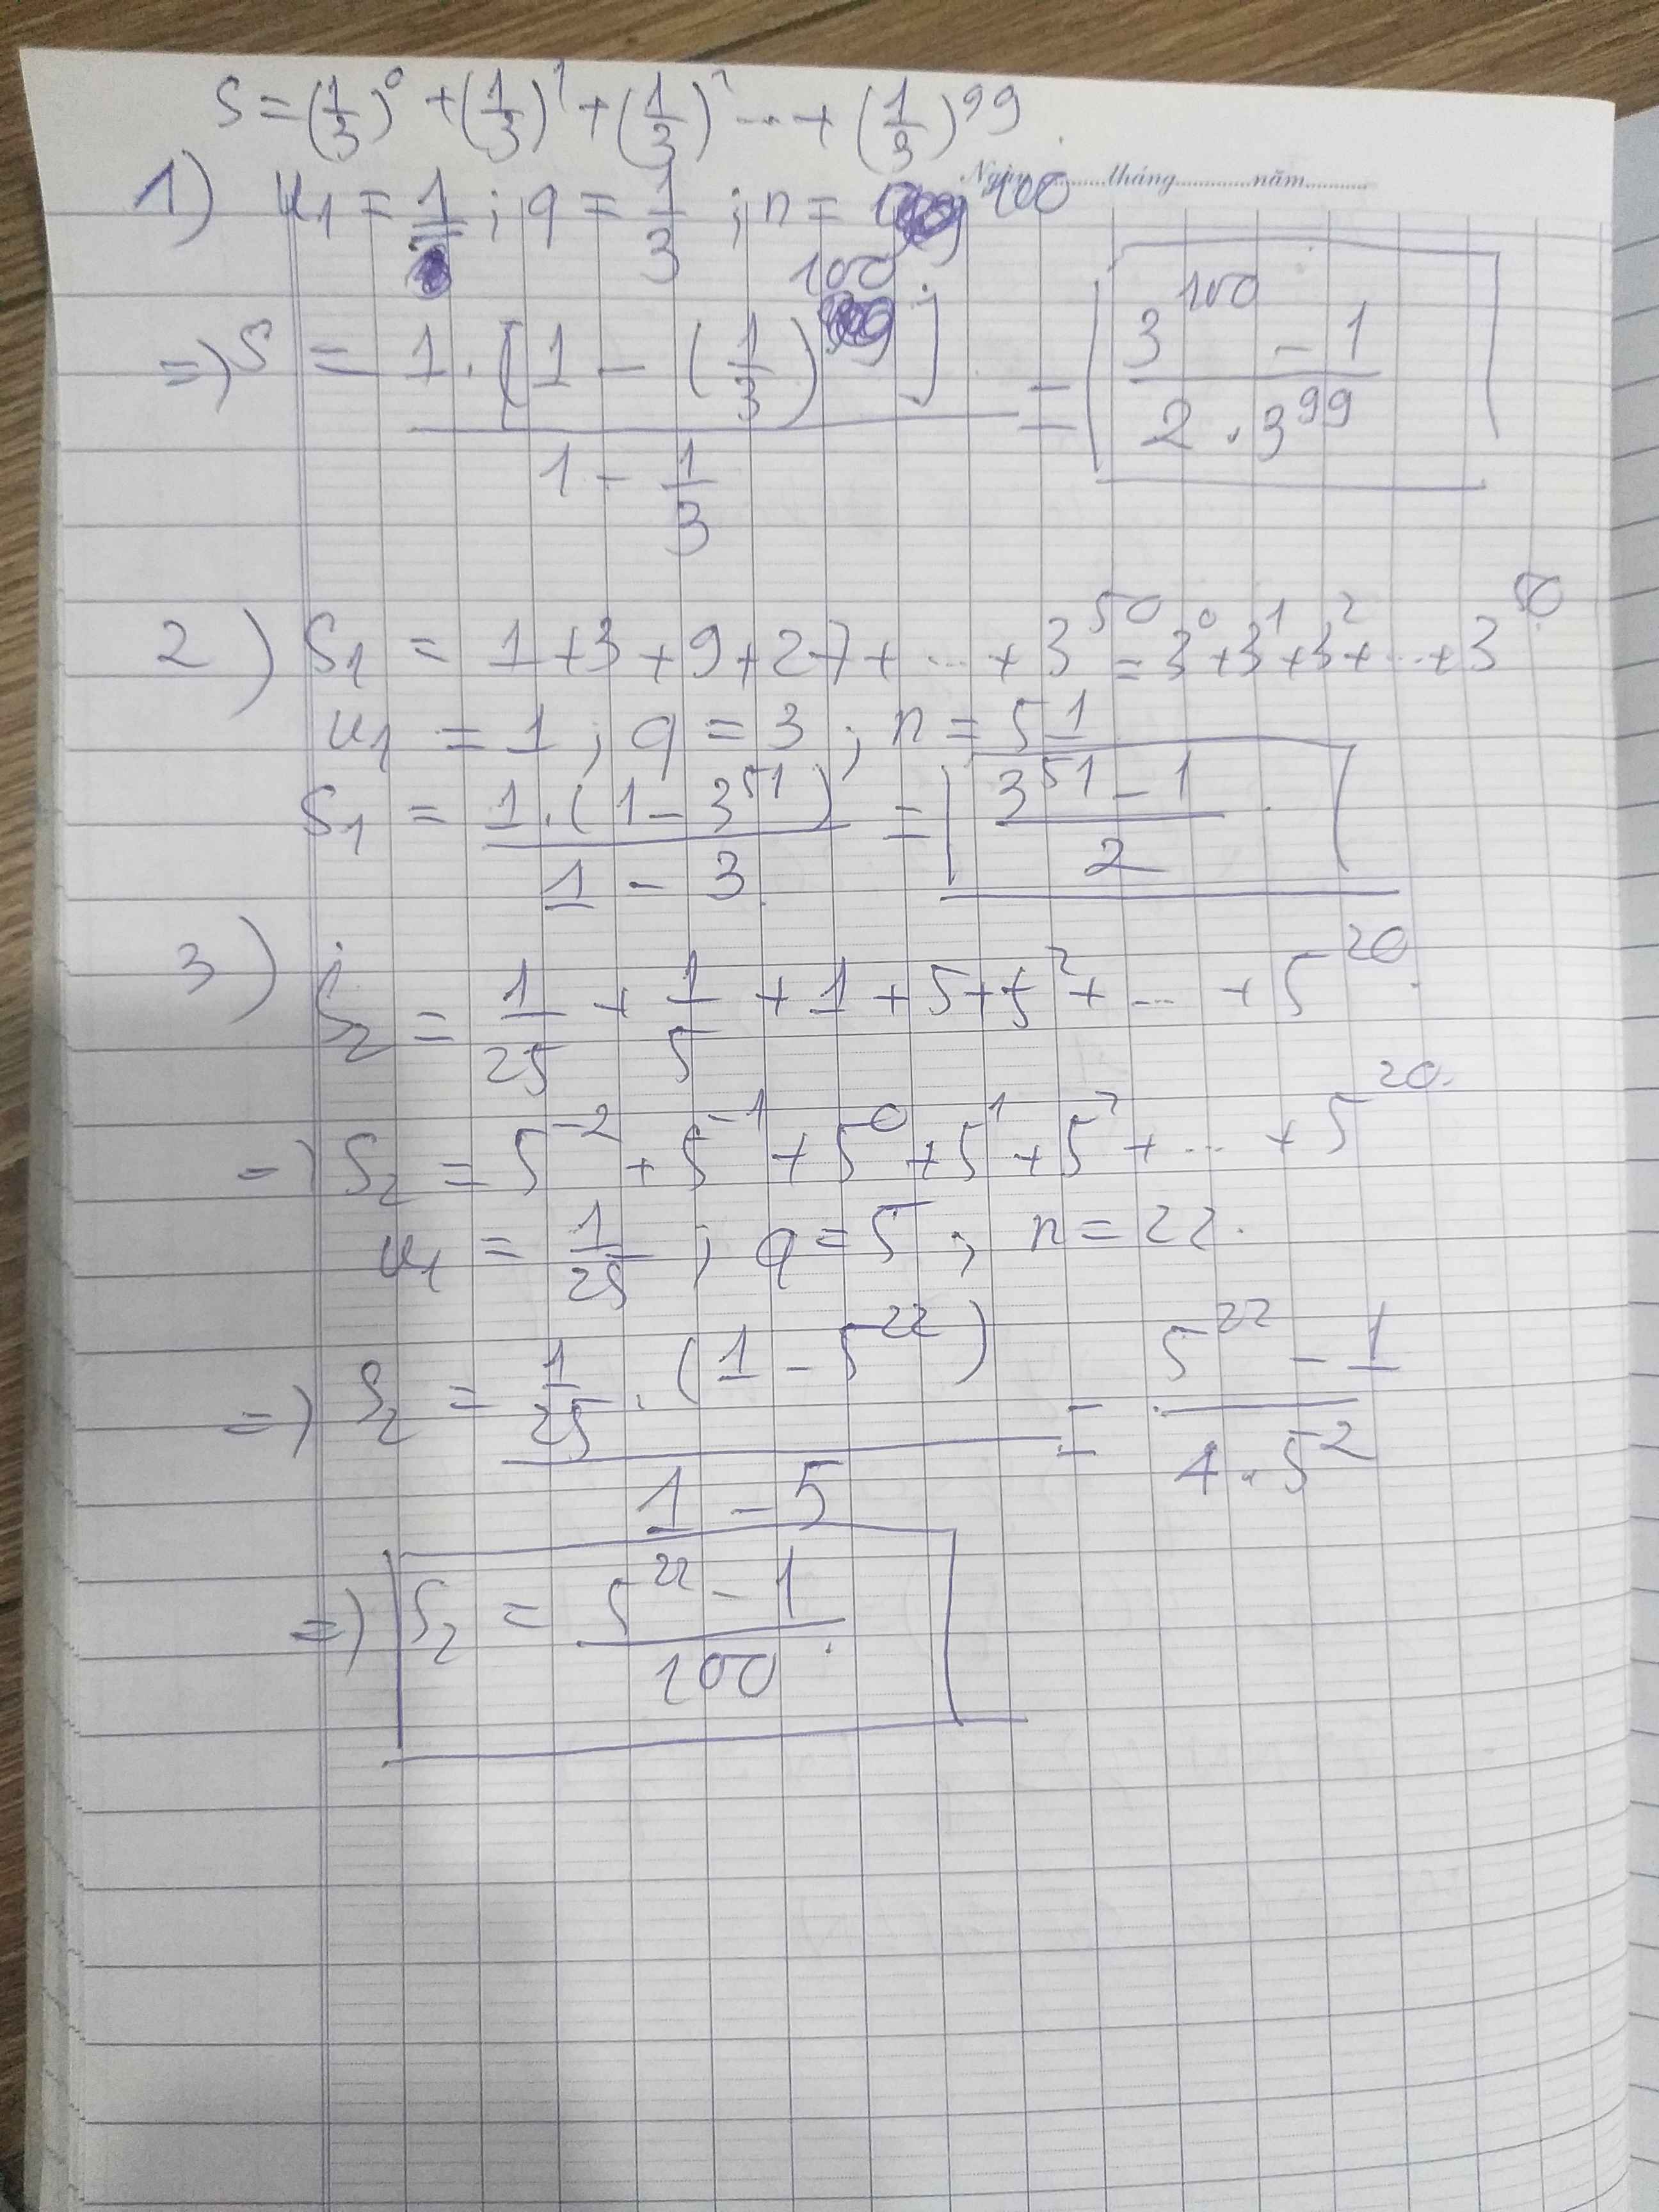 S = (1/3)^0 + (1/3)^1 + (1/3)^2 ... + (1/3)^99
Ngày ........ tháng ........ năm ........
1) u₁ = 1 ; q = 1/3 ; n = 100
=> S = 1.[1 - (1/3)^100] / (1 - 1/3) = (3^100 - 1) / (2.3^99)
2) S₁ = 1 + 3 + 9 + 27 + ... + 3^50 = 3^0 + 3^1 + 3^2 + ... + 3^50
u₁ = 1 ; q = 3 ; n = 51
S₁ = 1.(1 - 3^51) / (1 - 3) = (3^51 - 1) / 2
3) S₂ = 1/25 + 1/5 + 1 + 5 + 5^2 + ... + 5^20
=> S₂ = 5^-2 + 5^-1 + 5^0 + 5^1 + 5^2 + ... + 5^20
u₁ = 1/25 ; q = 5 ; n = 22.
=> S₂ = 1/25 . (1 - 5^22) / (1 - 5) = (5^22 - 1) / (4.5^2)
=> S₂ = (5^22 - 1) / 100